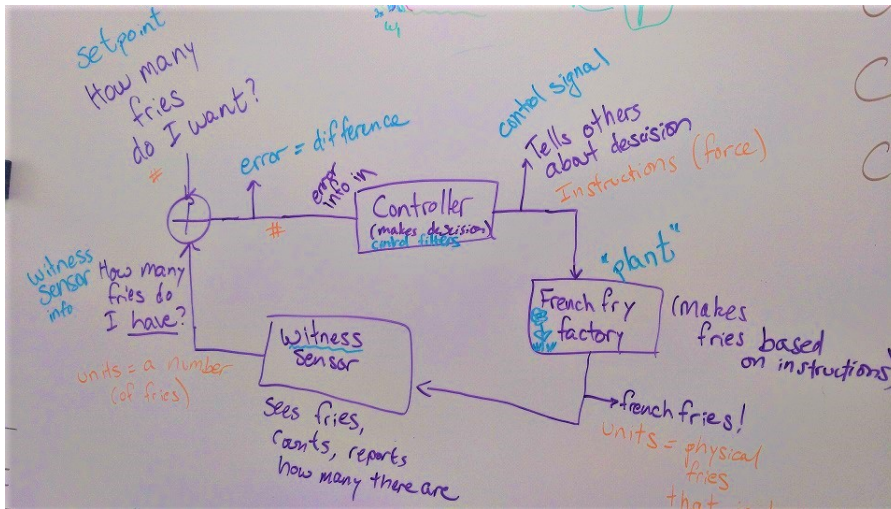 setpoint
How many
fries
do I want?
#
error = difference
error
info in
#
Controller
(makes descision)
control filters
control signal
Tells others
about descision
Instructions (force)
"plant"
French fry
factory
(makes
fries based
on instructions)
french fries!
units = physical
fries
Witness
Sensor
Sees fries,
counts, reports
how many there are
witness
Sensor
info
How many
fries do
I have?
units = a number
(of fries)